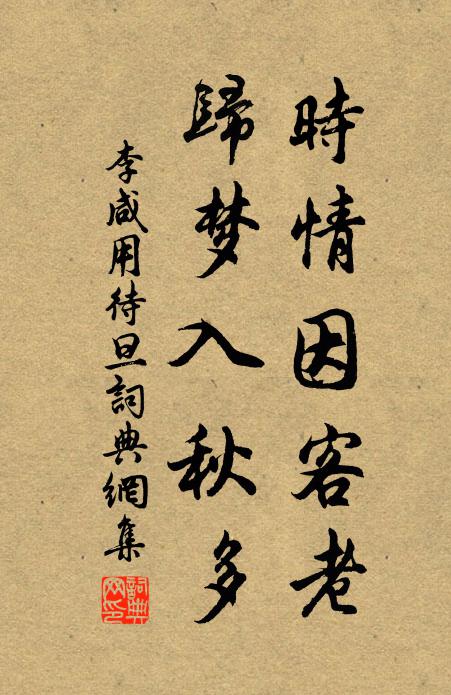 時情因客老
歸梦入秋多
李咸用待旦詞典網集
詞典网印